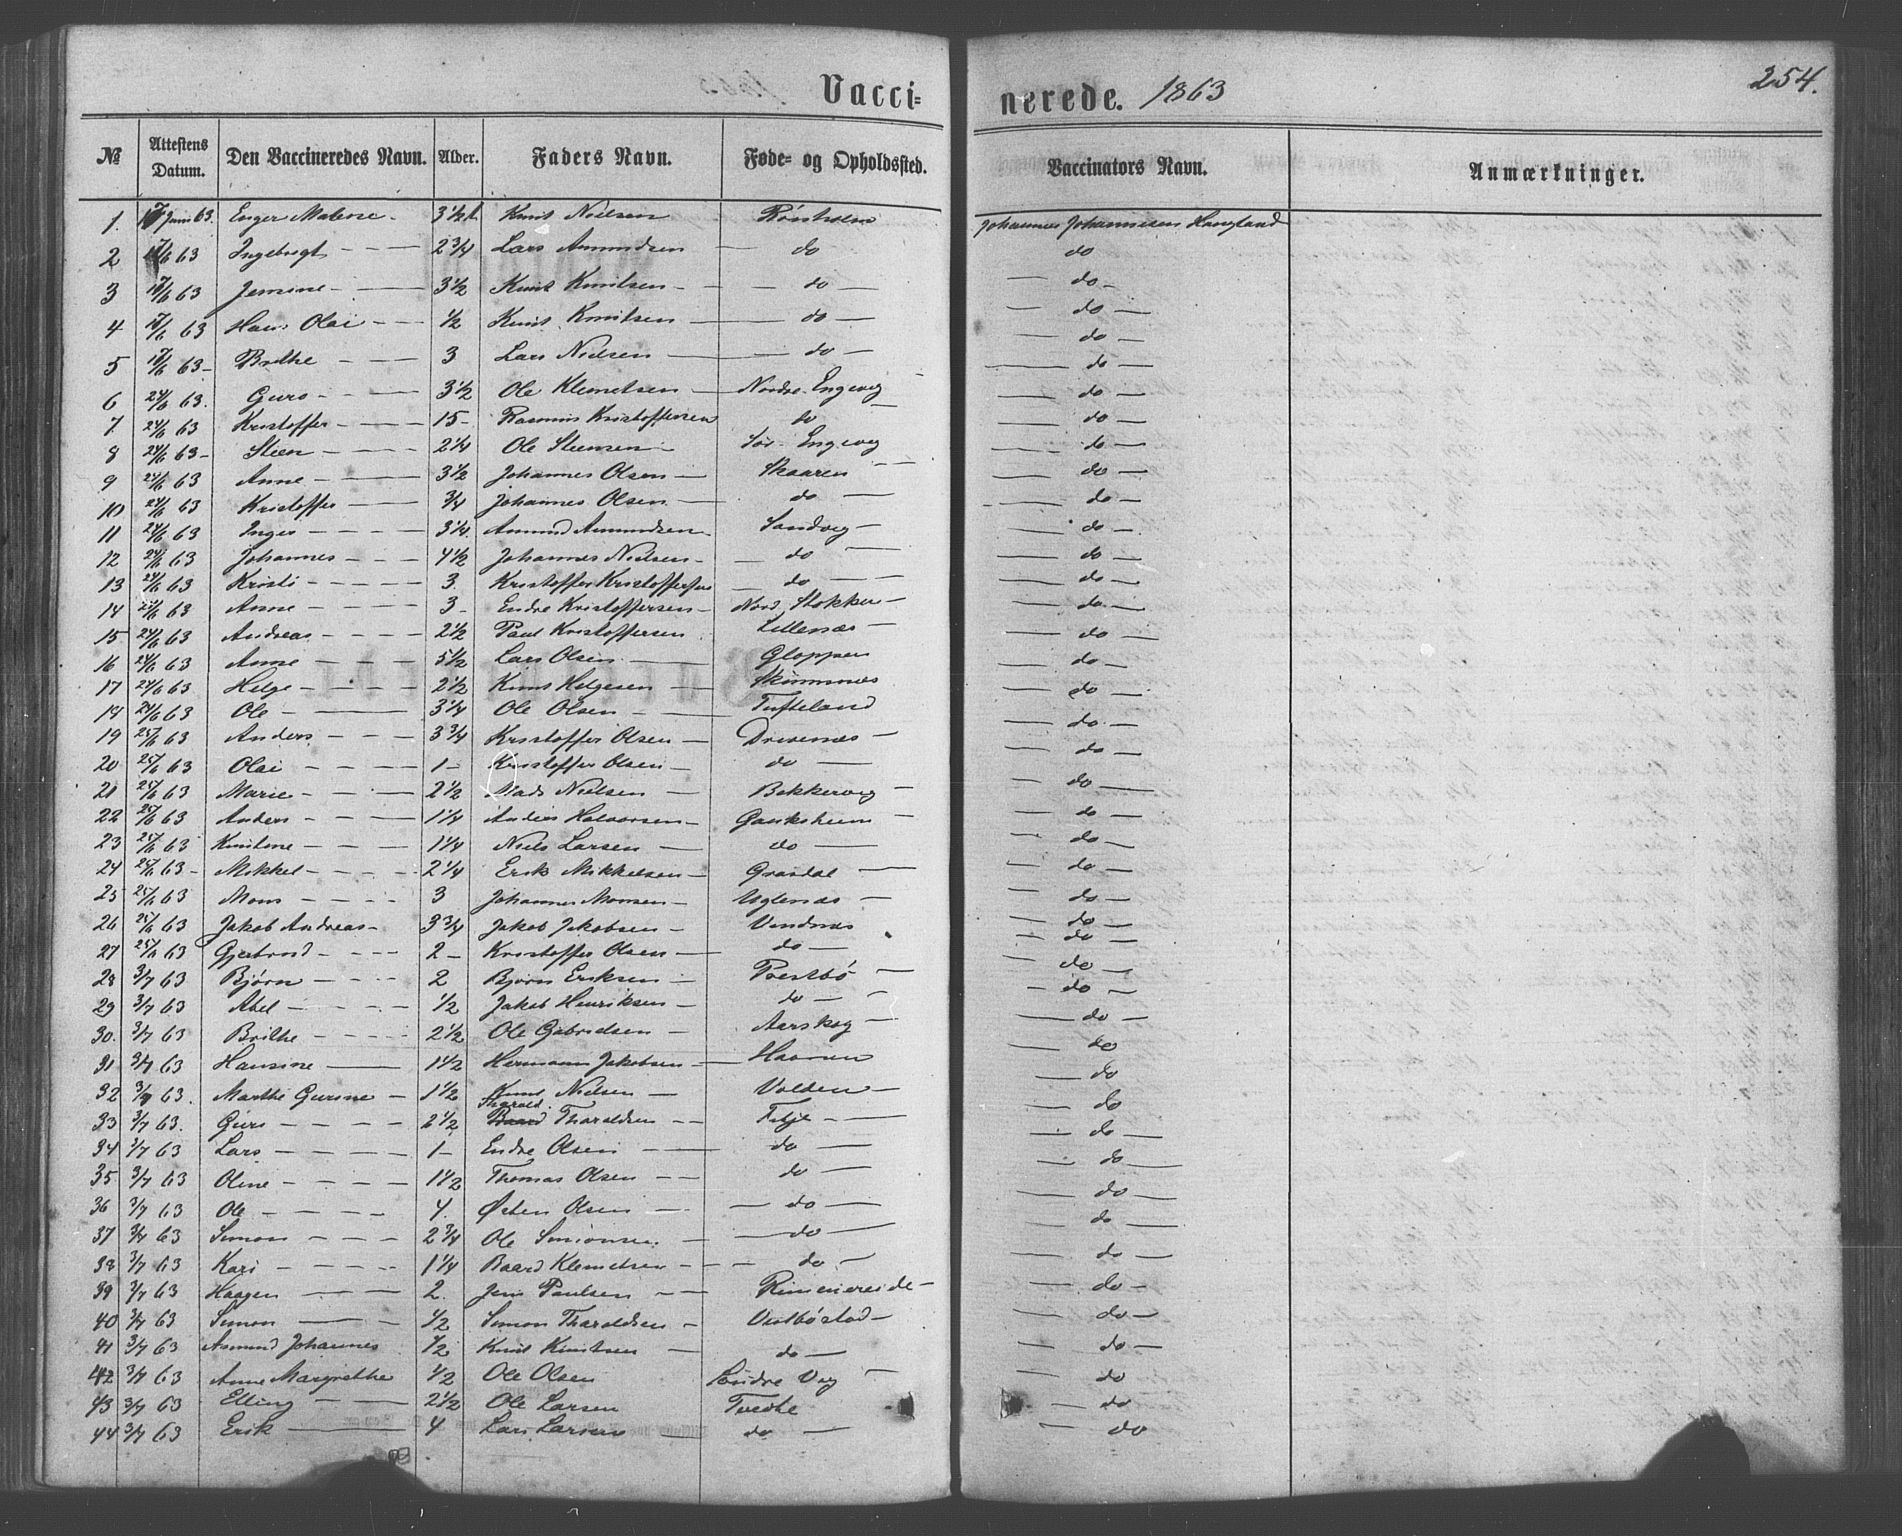 Vacci=
nerede. 1863
254.
№ Attestens Datum. Den Vaccineredes Navn. Alder. Faders Navn. Føde= og Opholdssted. Vaccinators Navn. Anmærkninger.
1. 17 Juni 63. Enger Malene - 3 1/2 Knut Nielsen Johannes Johannesen
2 17/6 63 Ingebrigt - 2 3/4 Lars Amundsen - do do
3 17/6 63 Jensine - 3 1/2 Knut Knutsen - do - do -
4 17/6 63 Hans Olai - 1/2 Knut Knutsen - do - do -
5 17/6 63 - Brithe - 3 Lars Nielsen - do - do -
6 24/6 63. Guro - 3 1/2 Ole Klemetsen - Nordre Engevig do -
7 24/6 63 Kristoffer - 15 - Rasmus Kristoffersen do do -
8 24/6 63 - Steen - 2 1/4 Ole Steensen - Sør - Engevig do -
9 24/6 63 Anne - 3 1/2 Johannes Olsen - Skaaren do -
10 24/6 63 Kristoffer - 3/4 Johannes Olsen - do - do -
11 24/6 63 Inger - 3 1/4. Amund Amundsen - Sandvig - do -
12 24/6 63 Johannes - 4 1/2 Johannes Nielsen - do - do -
13 24/6 63 Kristi - 3 Kristoffer Kristoffersen do - do -
14 24/6 63 Anne - 3 - Endre Kristoffersen - Nord. Stokken - do -
15 24/6 63 Andreas - 2 1/2 Paul Kristoffersen Lillenæs - do -
16 24/6 63 Anne - 5 1/2 Lars Olsen - Gloppen do -
17 24/6 63 Helge - 2 1/2 Knut Helgesen - Skimmenæs do -
18 24/6 63 Ole - 3 1/4 Ole Olsen - Tufteland do -
19 25/6 63 Anders - 3 3/4 Kristoffer Olsen - Drevenæs - do -
20 25/6 63 Olai - 1 - Kristoffer Olsen - do - do -
21 25/6 63 Marie - 2 1/2 Mads Nielsen - Bekkervig - do -
22 25/6 63 Anders - 1 1/4 Anders Halvorsen - Gauksheim - do -
23 25/6 63 Knutine - 1 1/4 Niels Larsen - do - do -
24 25/6 63 - Mikkel - 2 1/4 Erik Mikkelsen - Gravdal - do -
25 25/6 63 Mons - 3 Johannes Monsen - Uglenæs - do -
26 25/6 63 Jakob Andreas - 3 3/4 Jakob Jakobsen - Vindnæs do -
27 25/6 63 Gjertrud - 2 - Kristoffer Olsen - do - do -
28 3/7 63 Bjørn - 2 Bjørn Eriksen - Vestbø - do -
29 3/7 63 Abel - 1/2 Jakob Henriksen - do - do -
30. 3/7 63 Brithe - 2 1/2 Ole Gabrielsen - Aarskog - do -
31 3/7 63 Hansine - 1 1/2 Hermann Jakobsen - do
32 3/7 63. Marthe Gurine - 1 1/2 Knut Nielsen - Volden - do
33 3/7 63. Guro - 2 1/2 Tharald Tharaldsen - Fitje - do
34 3/7 63 Lars - 1 - Endre Olsen - do - do -
35 3/7 63 Oline - 1 1/2 Thomas Olsen - do - do -
36 3/7 63 Ole - 4. Østen Olsen - do - do -
37 3/7 63 Simon - 2 3/4 Ole Simonsen - do - do -
38 3/7 63 Kari - 1 1/4 Baard Klemetsen - do - do -
39 3/7 63 Haagen - 2. Jens Paulsen - Rimmereide - do -
40 3/7 63 Simon - 1/2 Simon Tharaldsen - Vestbøstad - do -
41 3/7 63 Asmund Johannes 1/2 Knut Knutsen - do - do -
42 3/7 63 Anne Margrethe 1/2 Ole Olsen Søndre Vig do
43 3/7 63 Elling - 2 1/2 Ole Larsen do
44 3/7 63 Erik - 4 Lars Larsen - do - do